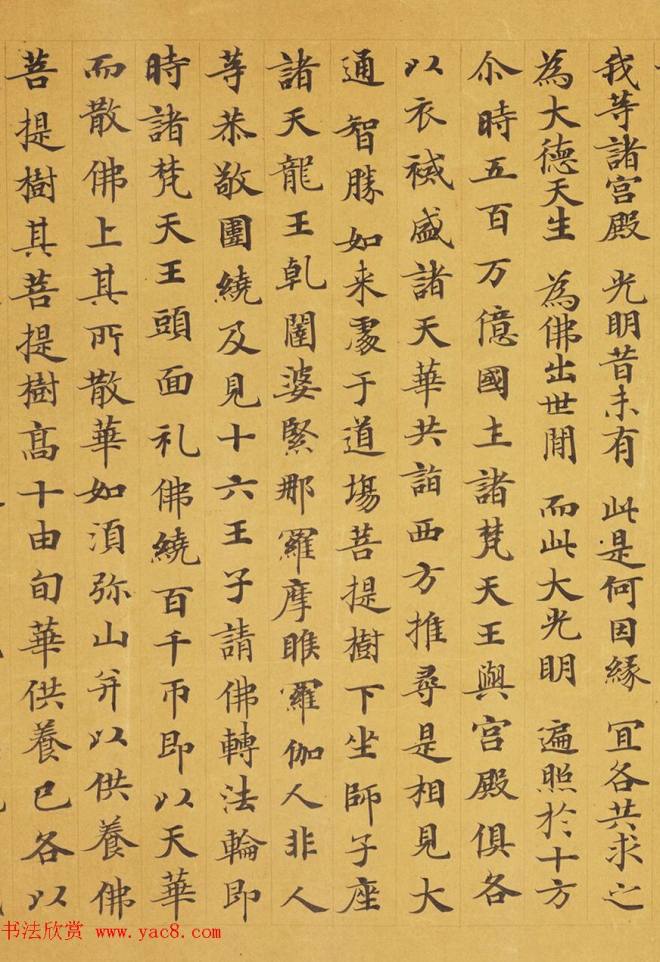 我等諸宮殿 光明昔未有 此是何因緣 冝各共求之
為大德天生 為佛出世間 而此大光明 遍照於十方
尒時五百万億國土諸梵天王與宮殿俱各
以衣裓盛諸天華共詣西方推尋是相見大
通智勝如来處于道塲菩提樹下坐師子座
諸天龍王乹闥婆緊那羅摩睺羅伽人非人
等恭敬圍繞及見十六王子請佛轉法輪即
時諸梵天王頭面礼佛繞百千帀即以天華
而散佛上其所散華如湏弥山并以供養佛
菩提樹其菩提樹髙十由旬華供養已各以
书法欣赏 www.yac8.com